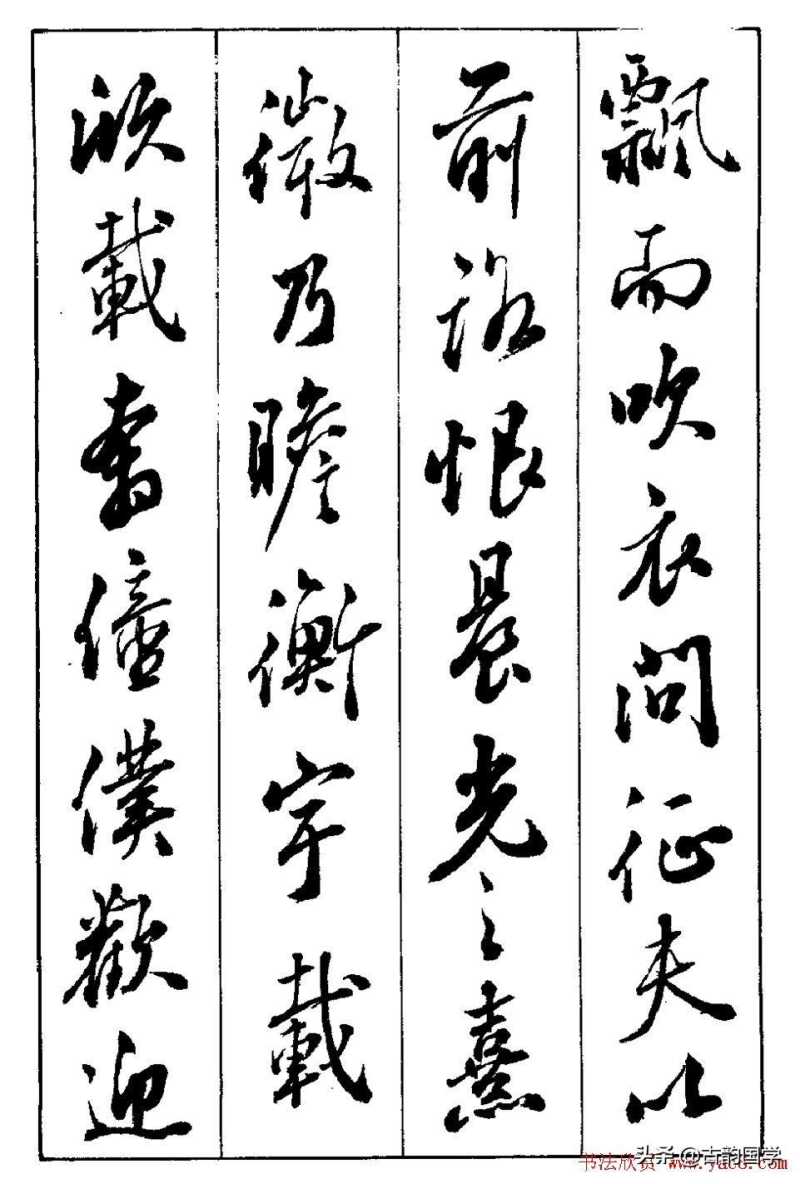 飄而吹衣問征夫以
前路恨晨光之熹
微乃瞻衡宇載
欣載奔僮僕歡迎
头条@古韵国学
书法欣赏 www.yac8.com